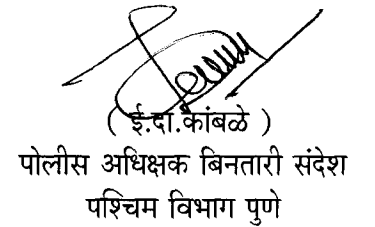 ( ई.दा.कांबळे )
पोलीस अधिक्षक बिनतारी संदेश
पश्चिम विभाग पुणे